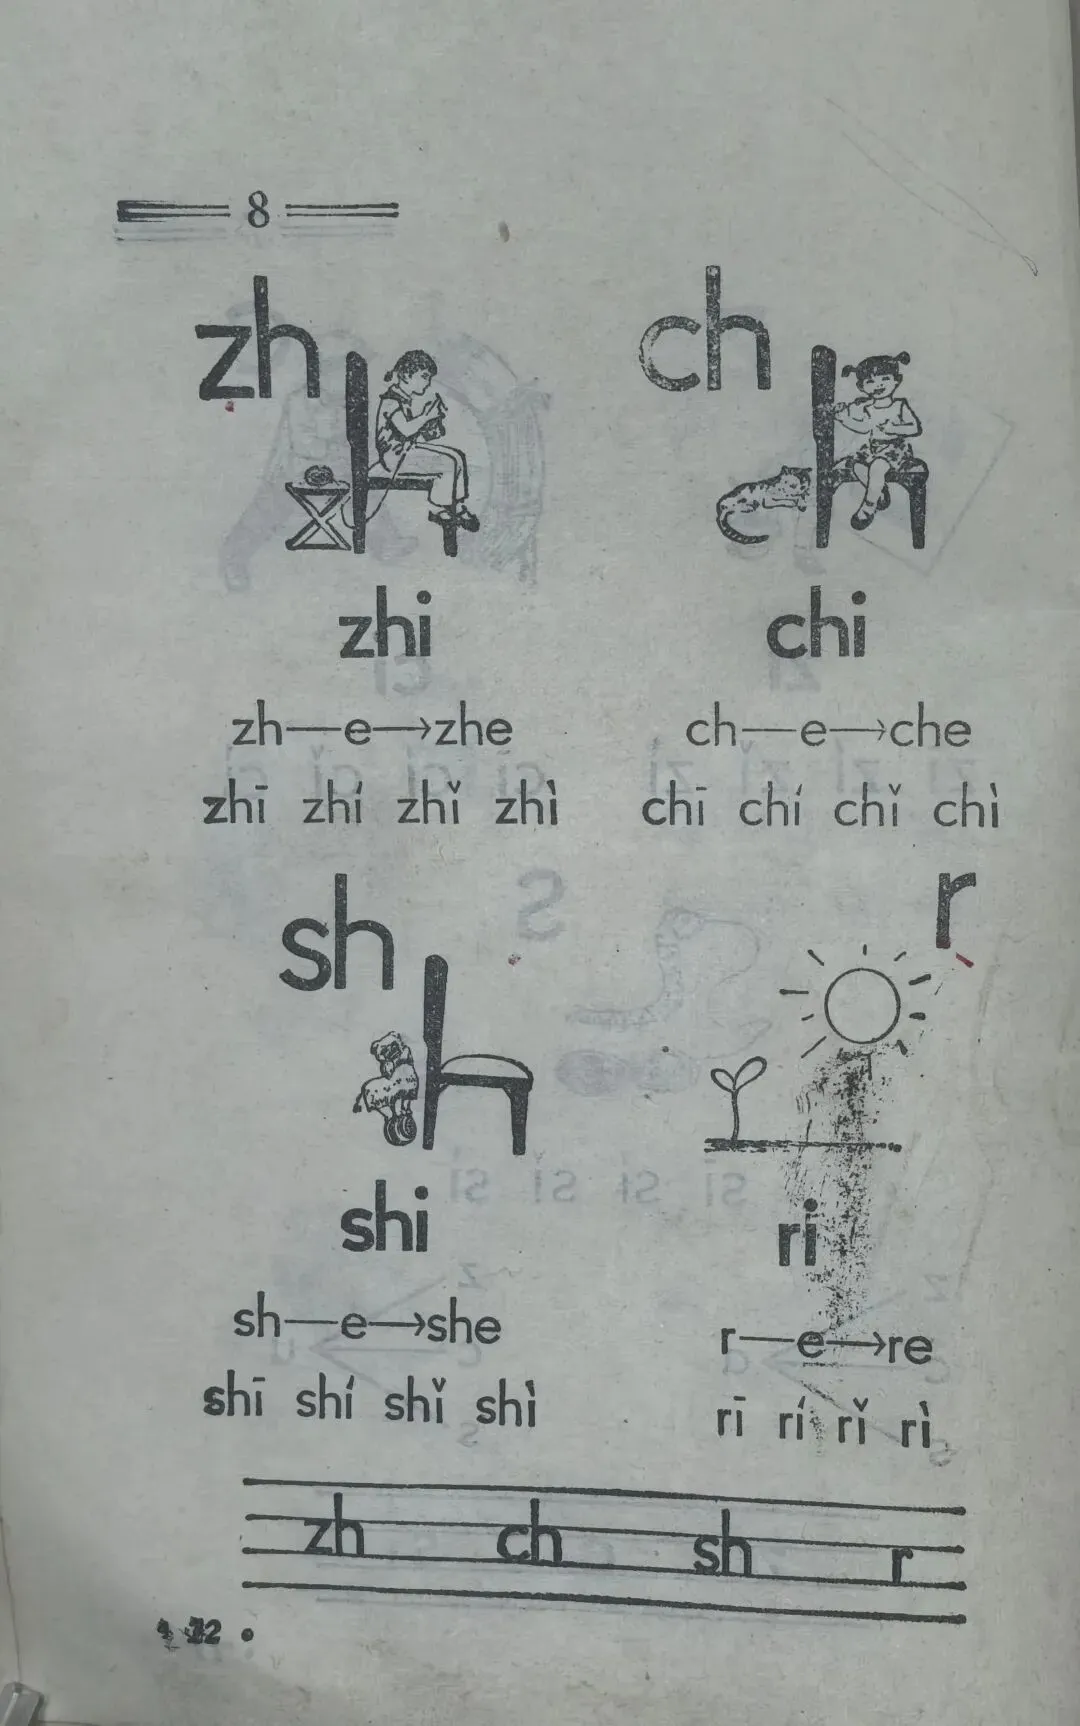 8
zh ch
zhi chi
zh—e→zhe ch—e→che
zhī zhí zhǐ zhì chī chí chǐ chì
sh r
shi ri
sh—e→she r—e→re
shī shí shǐ shì rī rí rǐ rì
zh ch sh r